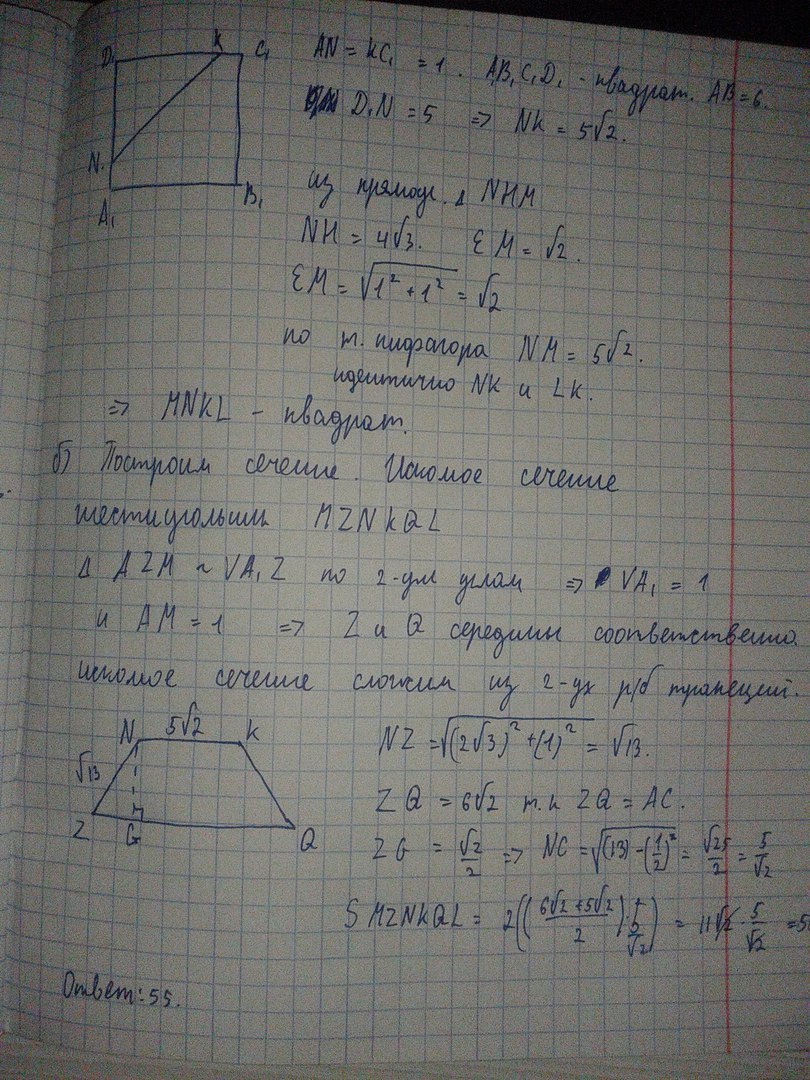 D₁ K C₁
N
A₁ B₁
AN = KC₁ = 1. AB₁C₁D₁ - квадрат. AB = 6.
D₁N = 5 => NK = 5√2.
из прямоуг. △ NHM
NH = 4√3. EM = √2.
EM = √(1² + 1²) = √2
по т. пифагора NM = 5√2.
идентично NK и LK.
=> MNKL - квадрат.
б) Построим сечение. Искомое сечение
шестиугольник MZNKQL
△ AZM ~ VA₁Z по 2-ум углам => VA₁ = 1
и AM = 1 => Z и Q середины соответственно.
искомое сечение сложим из 2-ух р/б трапеций.
N 5√2 K
√13
Z G Q
NZ = √((2√3)² + (1)²) = √13.
ZQ = 6√2 т.к ZQ = AC.
ZG = √2/2 => NC = √((13) - (1/2)²) = √25/2 = 5/√2
S MZNKQL = 2((6√2 + 5√2)/2 · 5/√2) = 11√2 · 5/√2 = 5
Ответ: 55.